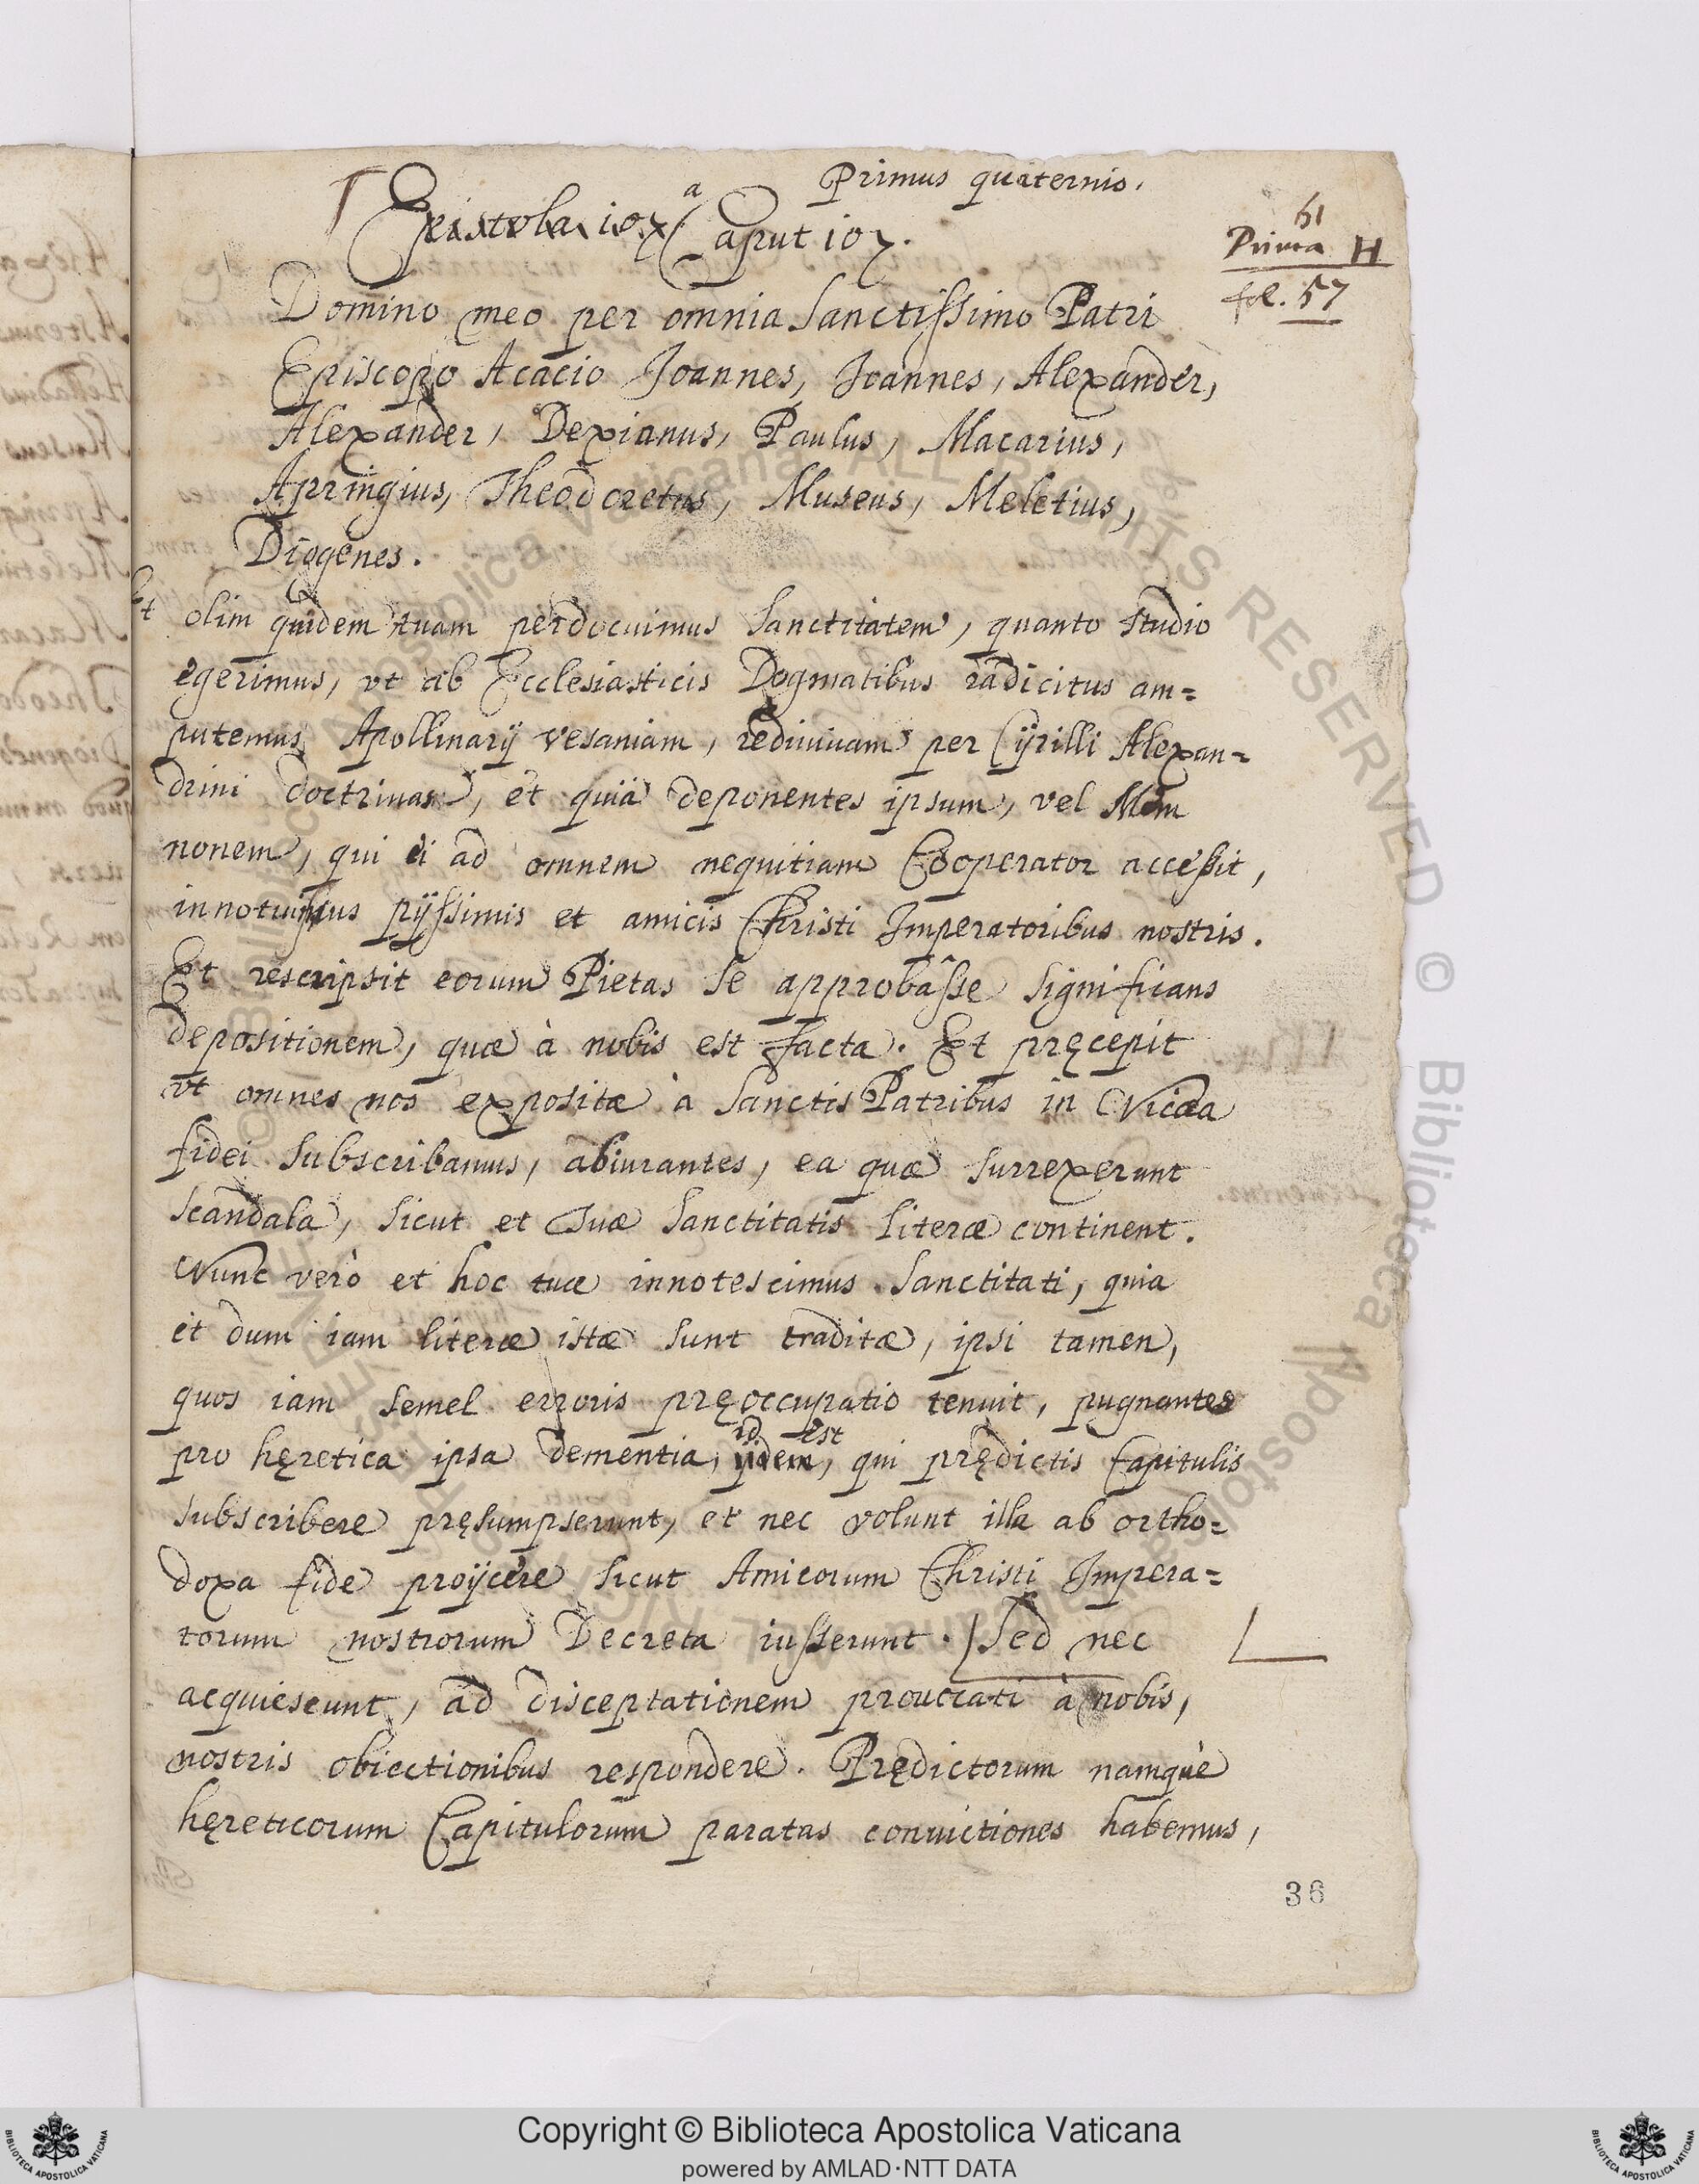 Primus quaternio.
Epistola 107.ª Caput 107.
61
Prima H
fol. 57
Domino meo per omnia Sanctissimo Patri
Episcopo Acacio Joannes, Joannes, Alexander,
Alexander, Dexianus, Paulus, Macarius,
Apringius, Theodoretus, Museus, Meletius,
Diogenes.
Et olim quidem tuam perdocuimus Sanctitatem, quanto studio
egerimus, vt ab Ecclesiasticis Dogmatibus radicitus am=
putemus Apollinarij vesaniam, rediuiuam per Cyrilli Alexan=
drini doctrinas, et quia deponentes ipsum, vel Mem
nonem, qui ei ad omnem nequitiam Cooperator accessit,
innotuimus pijssimis et amicis Christi Imperatoribus nostris.
Et rescripsit eorum Pietas se approbâsse significans
depositionem, quæ à nobis est facta. Et pręcepit
vt omnes nos expositæ à Sanctis Patribus in Nicæa
fidei subscribamus, abiurantes, ea quæ surrexerunt
scandala, sicut et Tuæ Sanctitatis literæ continent.
Nunc verò et hoc tuæ innotescimus Sanctitati, quia
et dum iam literæ istæ sunt traditæ, ipsi tamen,
quos iam semel erroris pręoccupatio tenuit, pugnantes
pro hęretica ipsa dementia, id est, qui prędictis Capitulis
subscribere pręsumpserunt, et nec volunt illa ab ortho=
doxa fide proijcere sicut Amicorum Christi Impera=
torum nostrorum Decreta iusserunt. Sed nec
acquiescunt, ad disceptationem prouocati à nobis,
nostris obiectionibus respondere. Prędictorum namquè
hęreticorum Capitulorum paratas conuictiones habemus,
36
© Biblioteca Apostolica Vaticana ALL RIGHTS RESERVED
Copyright © Biblioteca Apostolica Vaticana
powered by AMLAD·NTT DATA
BIBLIOTECA APOSTOLICA VATICANA
BIBLIOTECA APOSTOLICA VATICANA